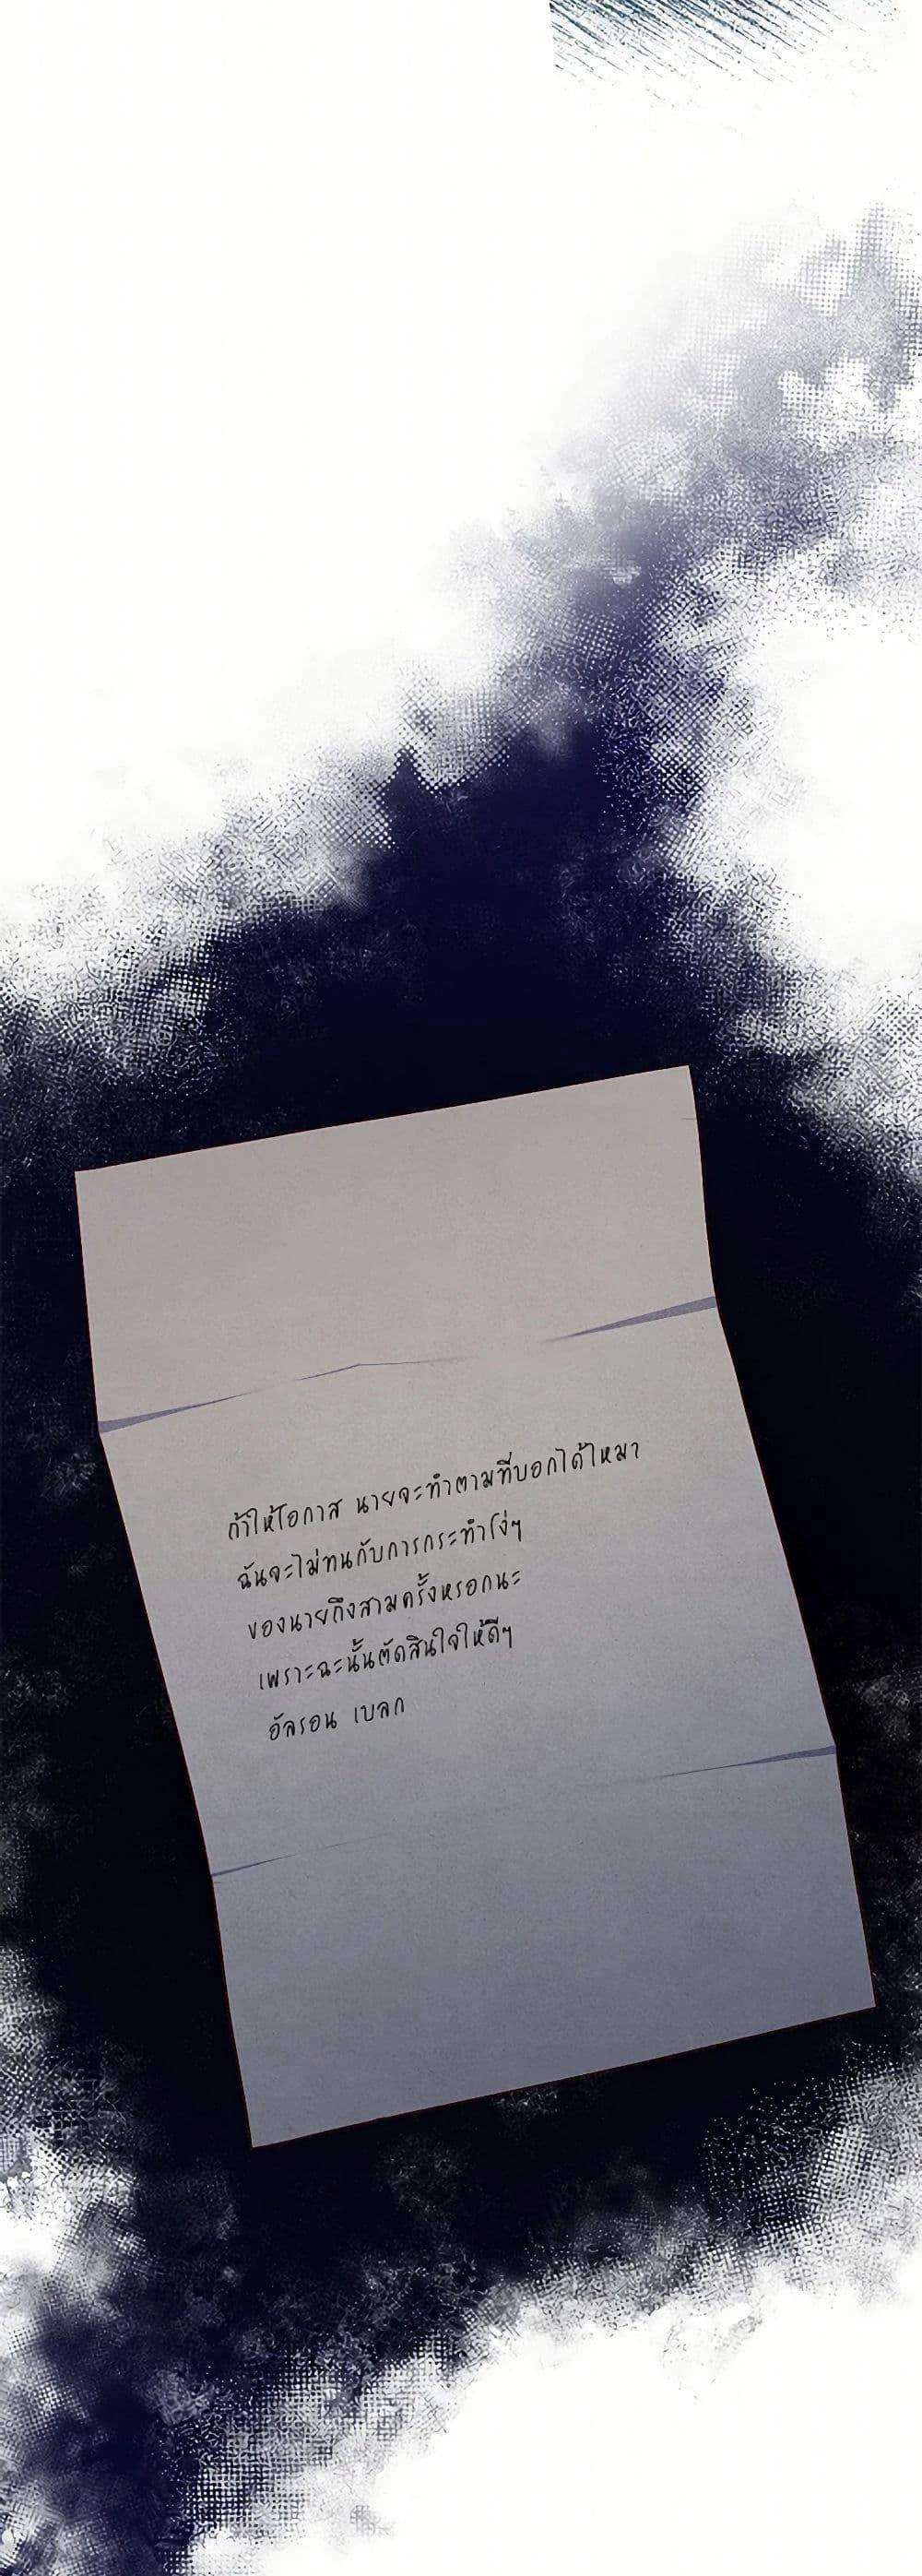 ถ้าให้โอกาส นายจะทำตามที่บอกได้ไหมา
ฉันจะไม่ทนกับการกระทำโง่ๆ
ของนายถึงสามครั้งหรอกนะ
เพราะฉะนั้นตัดสินใจให้ดีๆ
อัลรอน เบลก